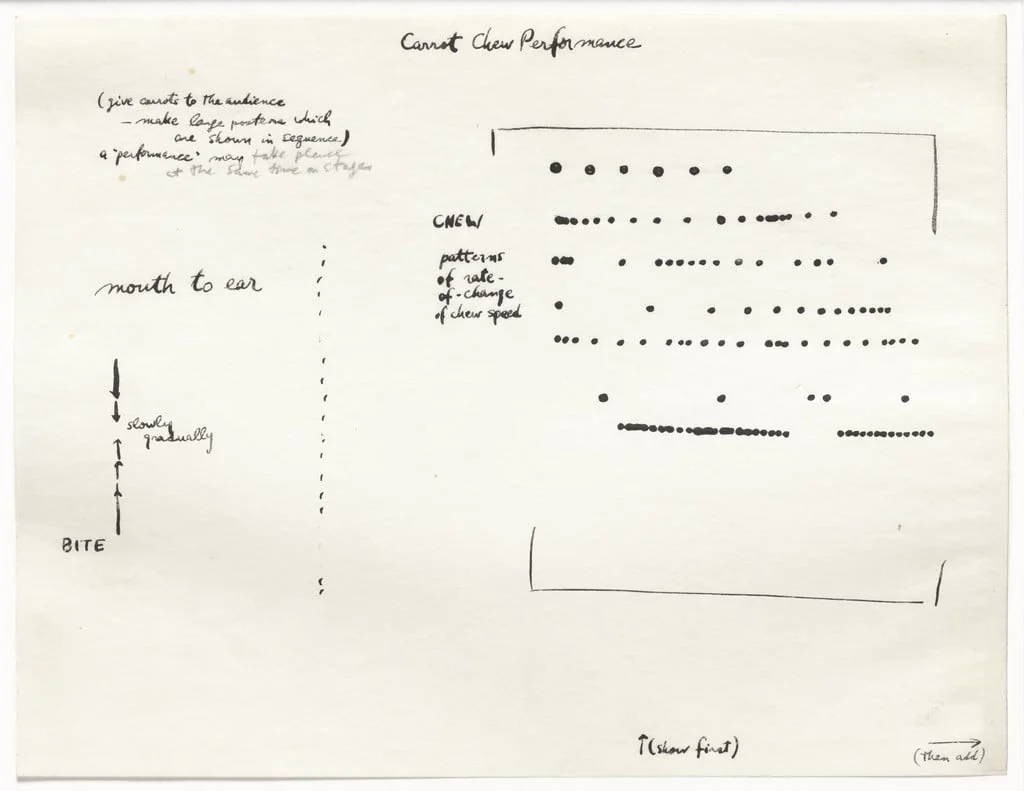 Carrot Chew Performance
(give carrots to the audience
— make large posters which
are shown in sequence)
a "performance" may take place
at the same time on stage
mouth to ear
slowly
gradually
BITE
CHEW
patterns
of rate-
of-change
of chew speed
↑(show first)
(then add)